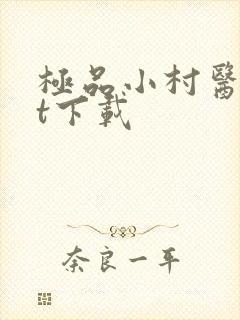 極品小村醫
t下載
奈良一平